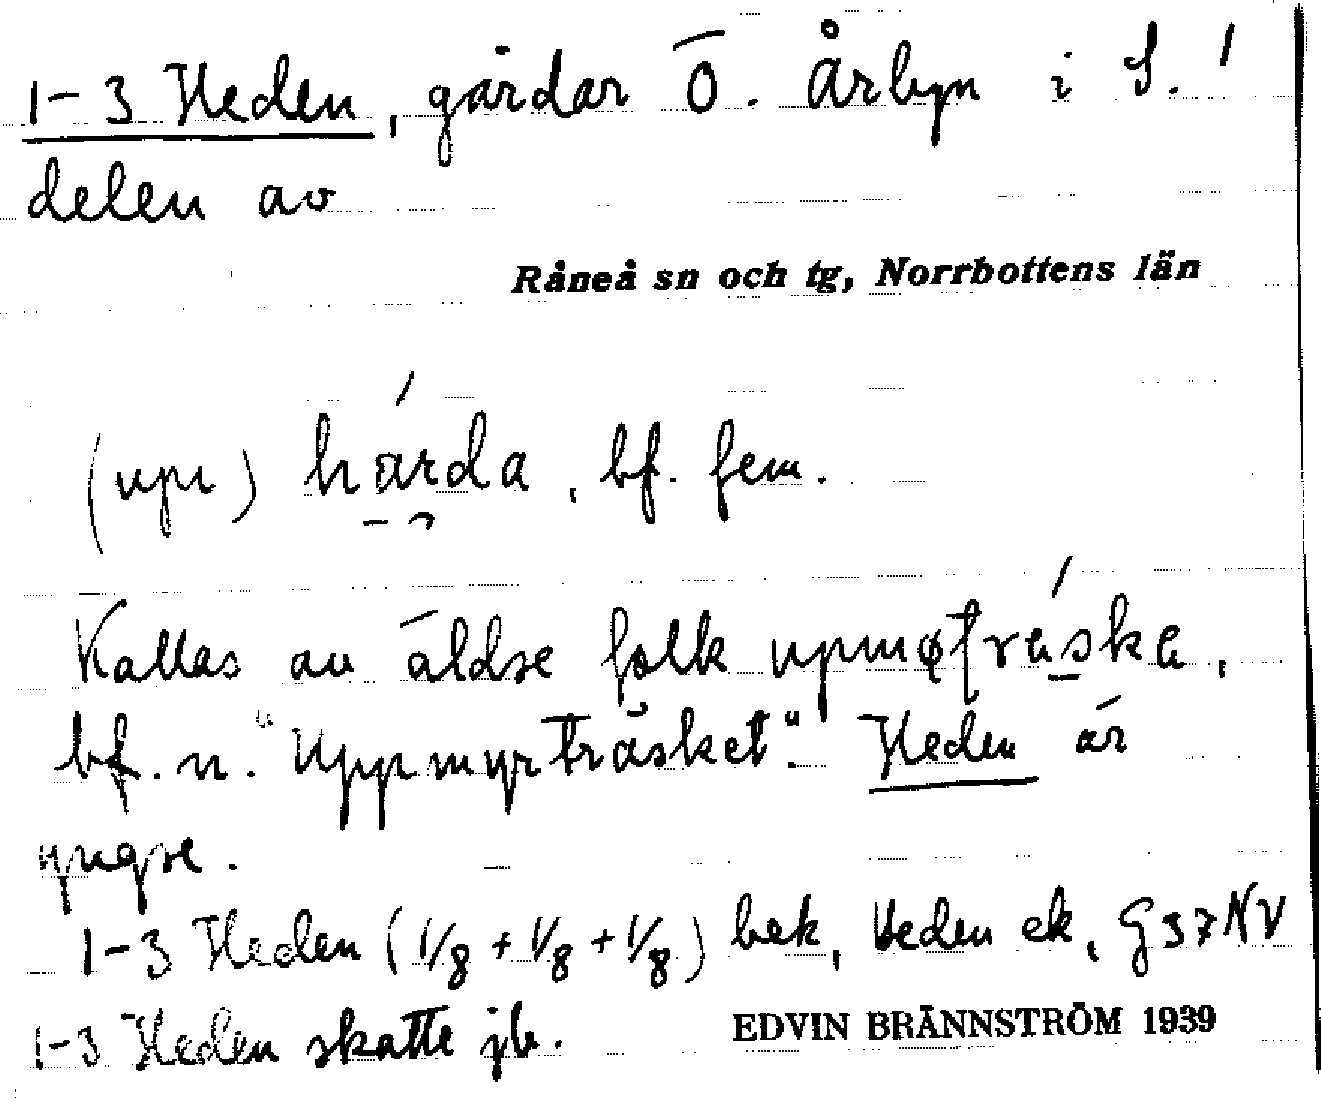 1-3 Heden, gårdar Ö. Årbyn i S.
delen av
Råneå sn och tg, Norrbottens län
(upr) hárda, bf. fem.
Kallas av äldre folk
bf. n. "Uppmyrträsket". Heden är
yngre.
1-3 Heden (1/8 + 1/8 + 1/8) bek, Heden ek, G 37 NV
1-3 Heden skatte jb.
EDVIN BRÄNNSTRÖM 1939